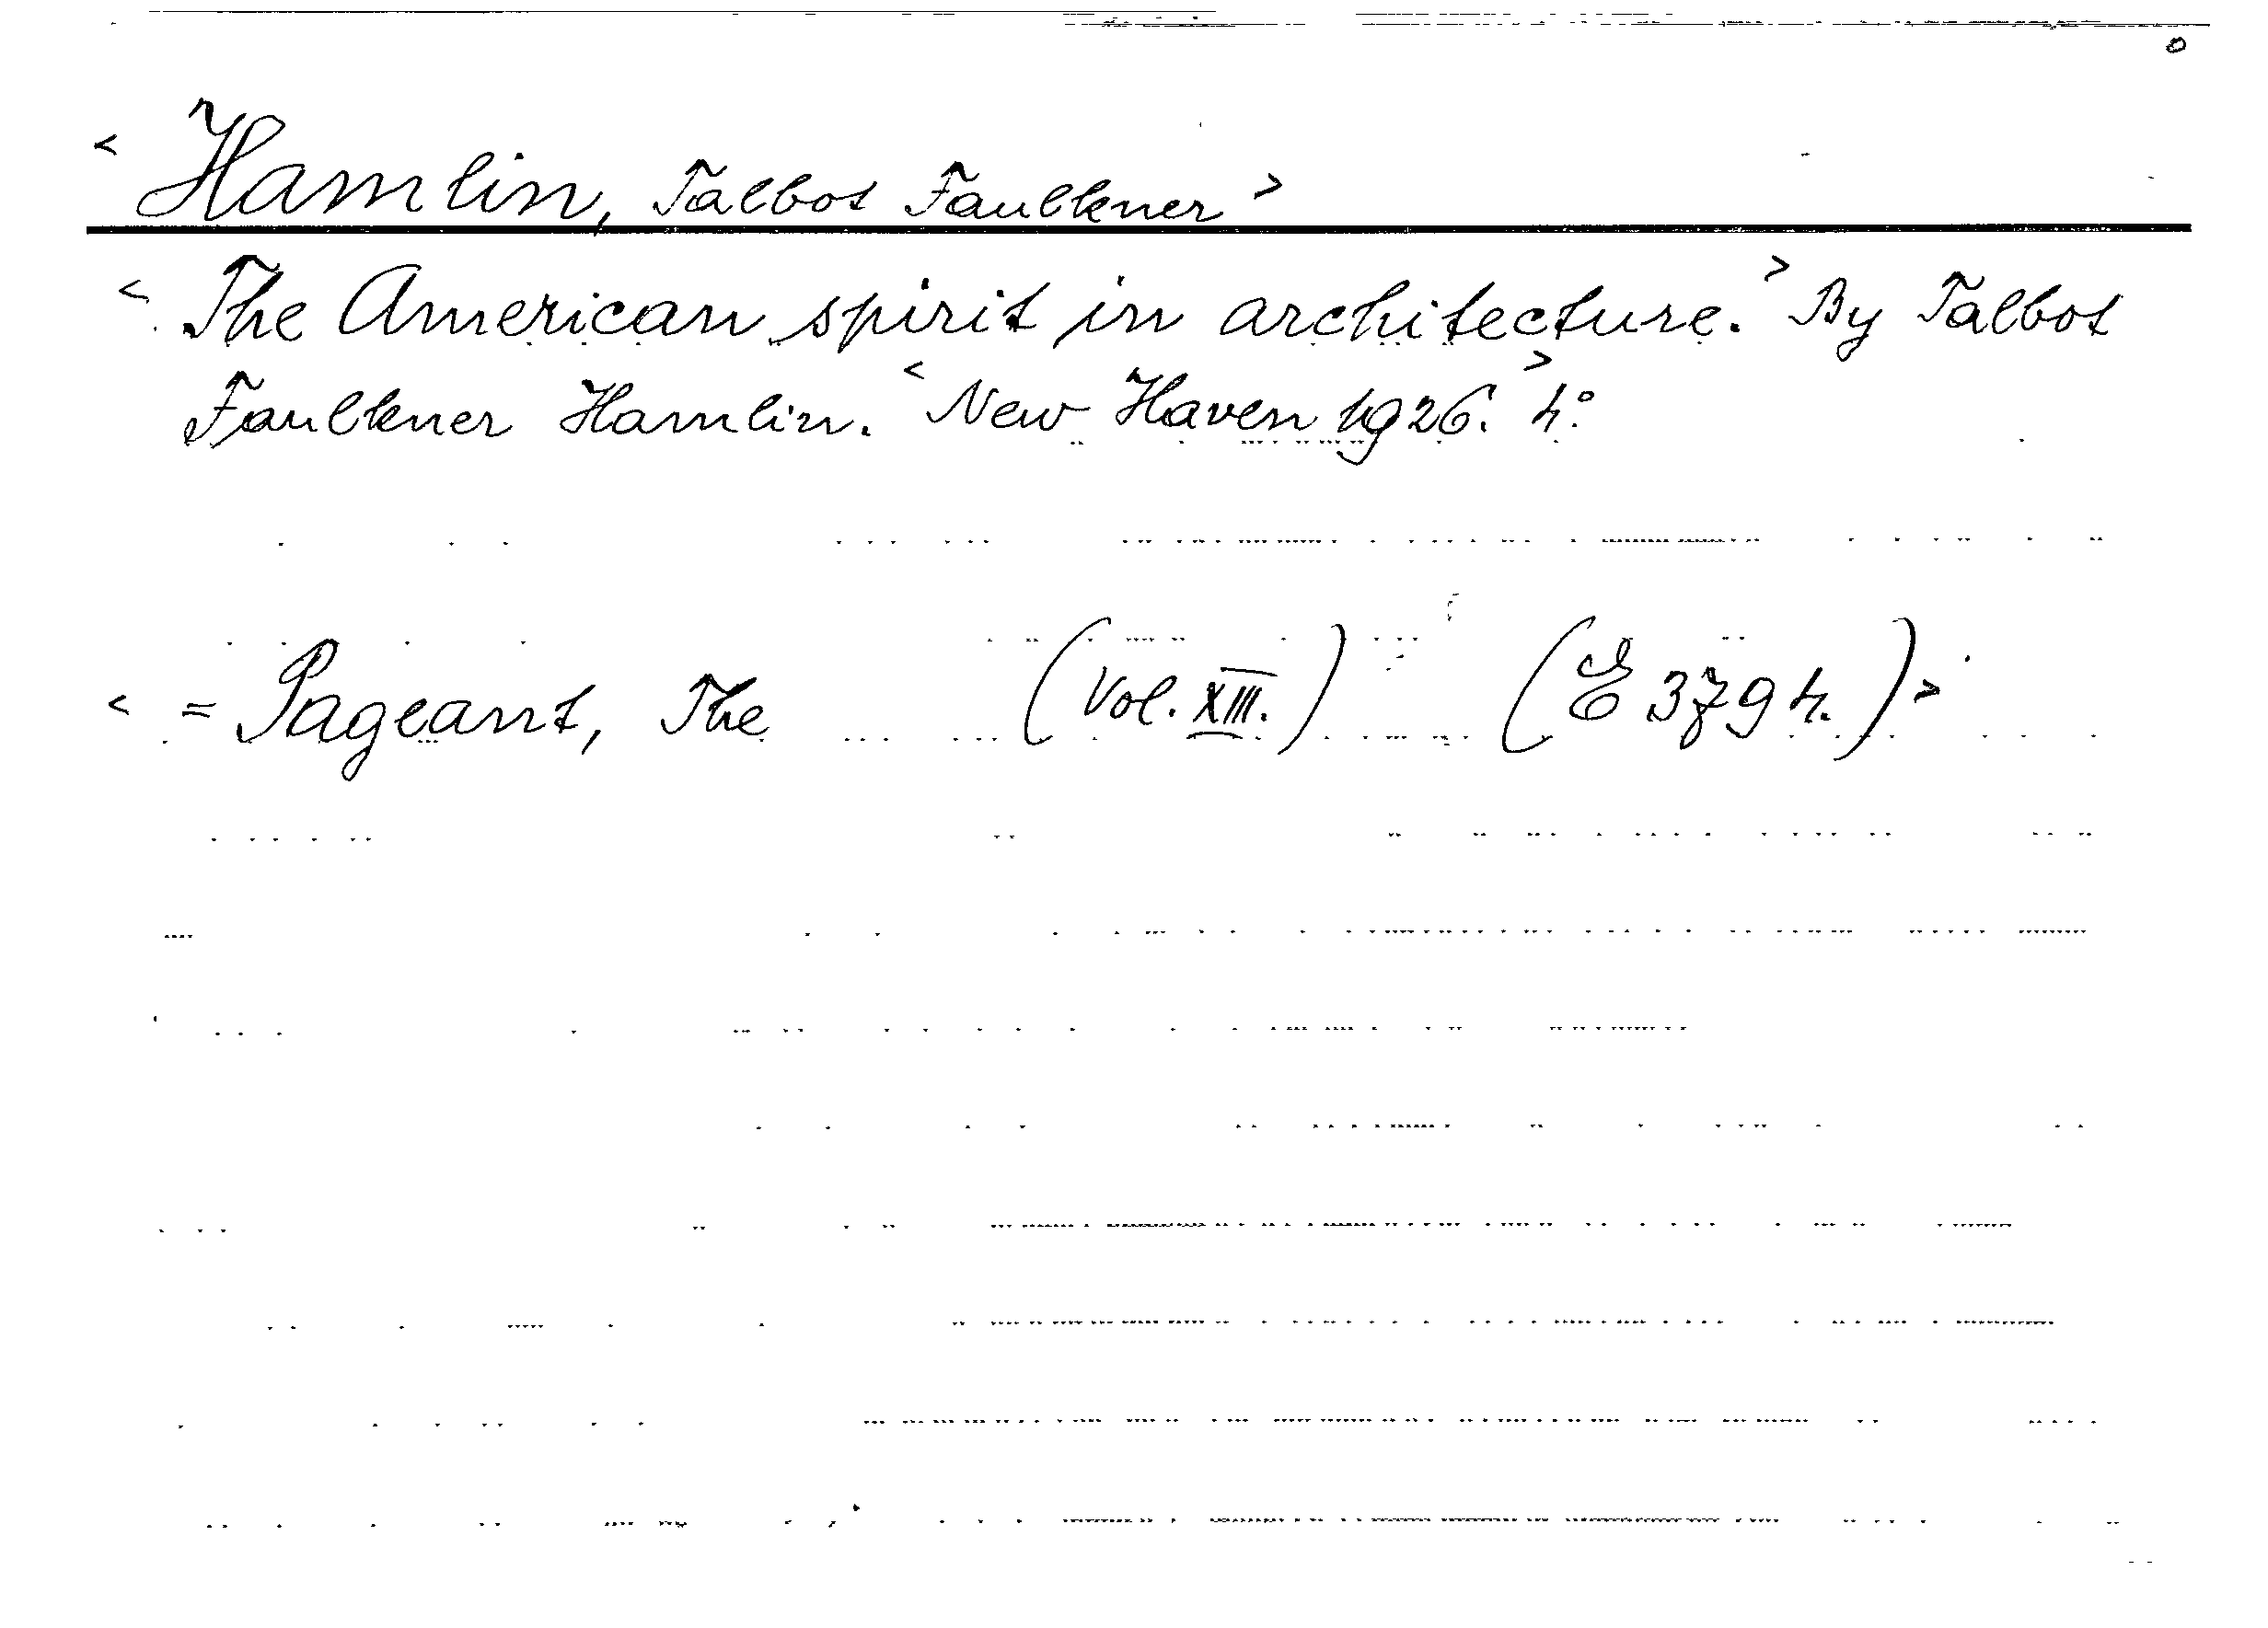 < Hamlin, Talbot Faulkner >
< The American spirit in architecture. > By Talbot
Faulkner Hamlin. < New Haven 1926. > 4°.
< = Pageant, The (Vol. XIII.) (E 3794.) >